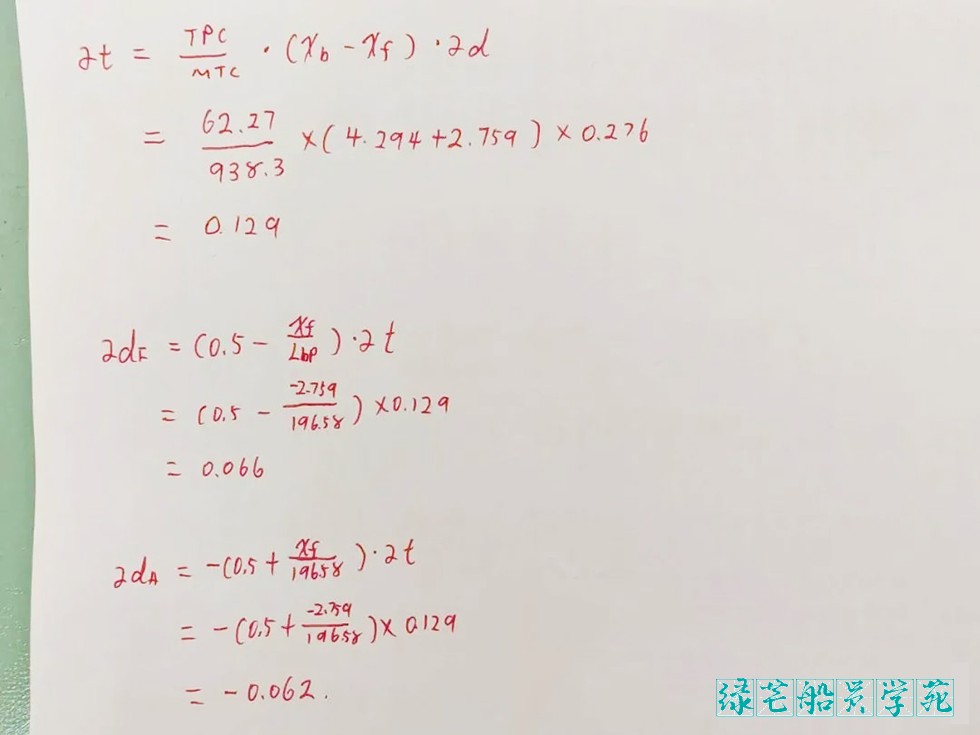 ∂t = TPC/MTC · (Xb - Xf) · ∂d
= 62.27/938.3 × (4.294 + 2.759) × 0.276
= 0.129
∂dF = (0.5 - Xf/Lbp) · ∂t
= (0.5 - -2.759/196.58) × 0.129
= 0.066
∂dA = -(0.5 + Xf/196.58) · ∂t
= -(0.5 + -2.759/196.58) × 0.129
= -0.062.
绿芒船员学苑